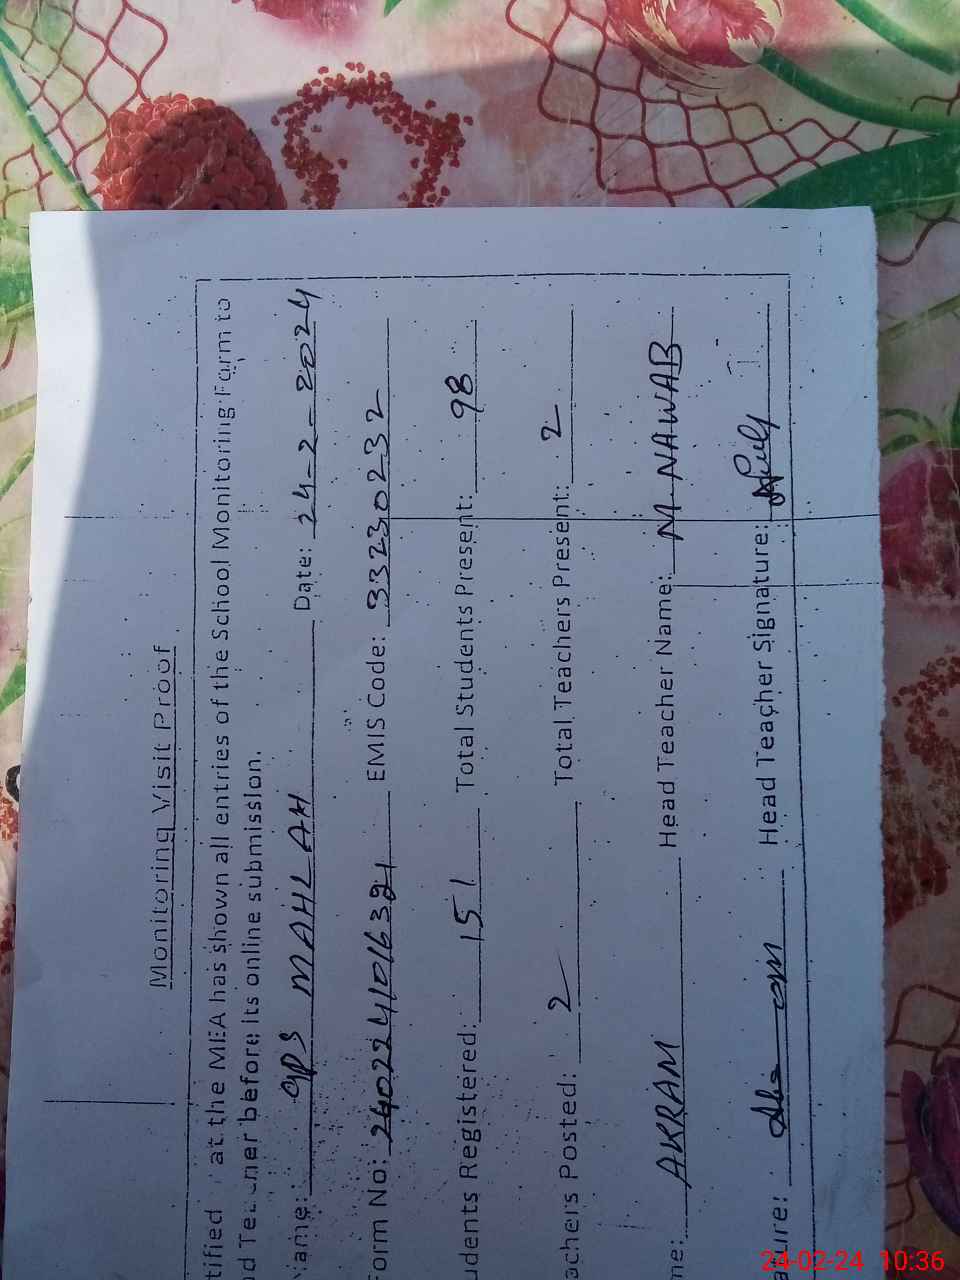 Monitoring Visit Proof
tified at the MEA has shown all entries of the School Monitoring Form to
d before its online submission.
ame: GPS MAHLAH Date: 24-2-2024
Form No: EMIS Code: 33230232
udents Registered: 151 Total Students Present: 98
achers Posted: 2 Total Teachers Present: 2
me: AKRAM Head Teacher Name: M NAWAB
ature: Head Teacher Signature:
24-02-24 10:36